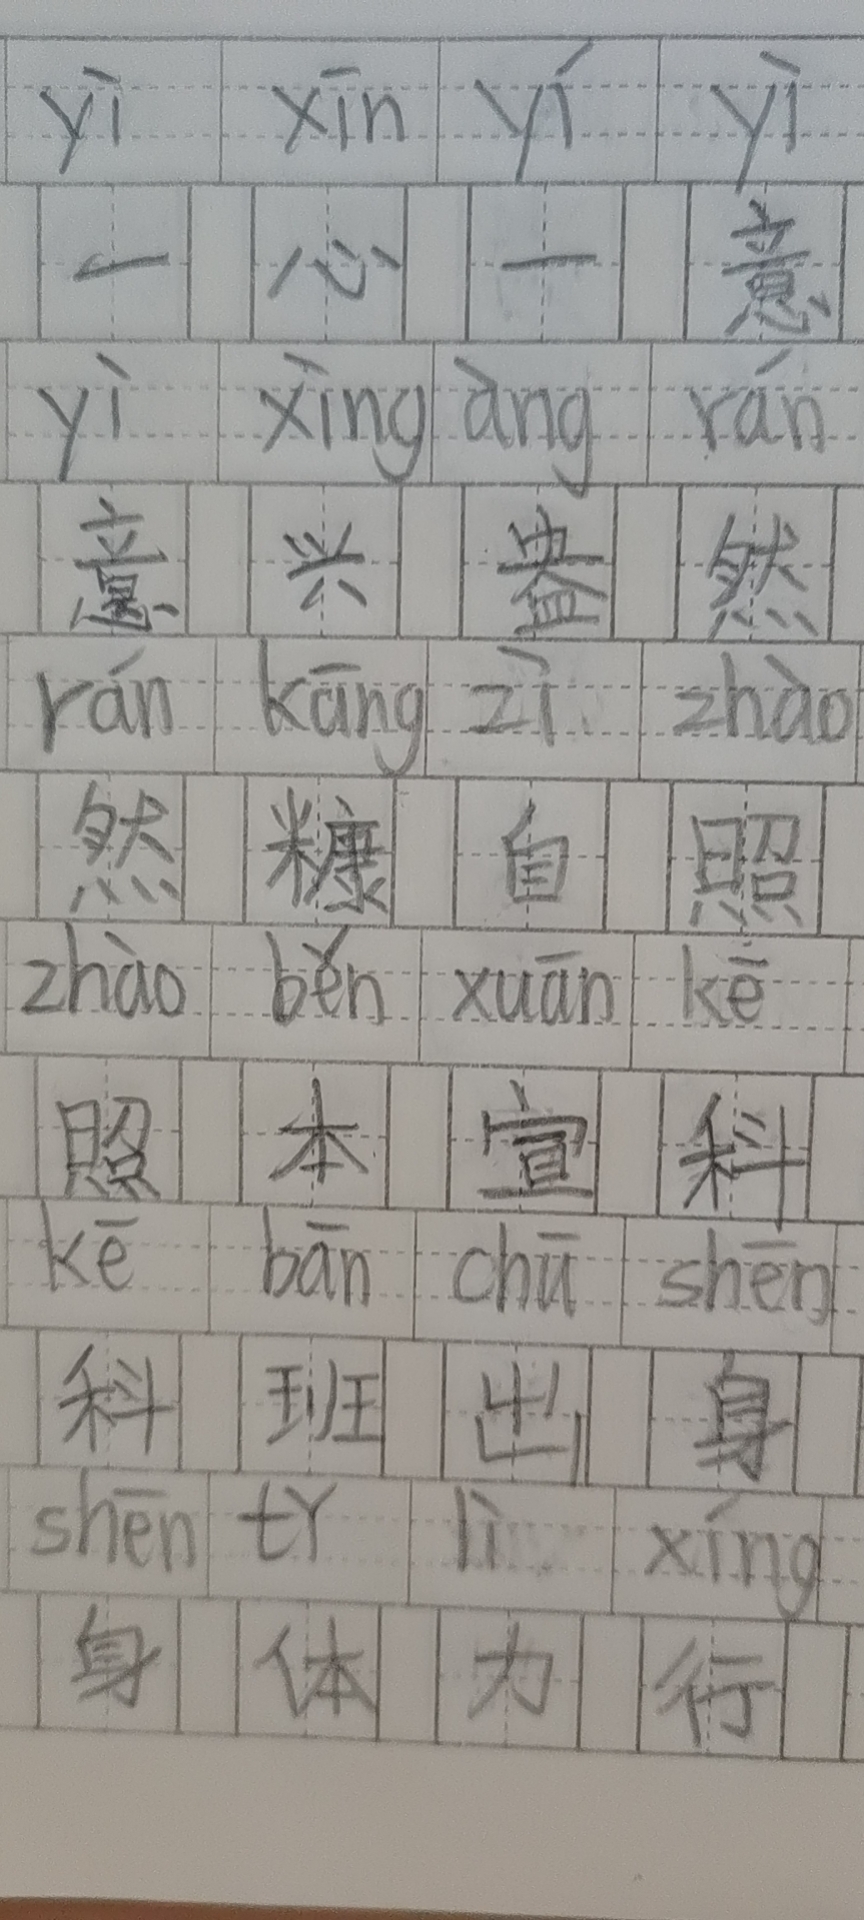 yì xīn yí yì
一心一意
yì xìng àng rán
意兴盎然
rán kāng zì zhào
然糠自照
zhào běn xuān kē
照本宣科
kē bān chū shēn
科班出身
shēn tǐ lì xíng
身体力行